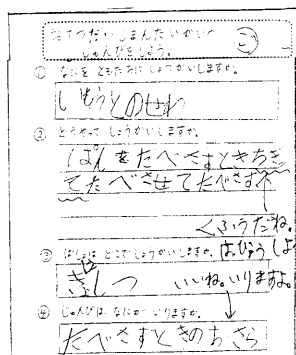 おてつだいじまんたいかいの
じゅんびをしよう。
① なにを ともだちに しょうかいしますか。
いもうとのせわ
② どうやって しょうかいしますか。
ぱんをたべさすときちぎ
てたべさせてたべさす
くふうだね。
③ ばしょは どこでしょうかいしますか。
きょしつ
いいね。いりますよ。
④ じゅんびは なにが いりますか。
たべさすときのおさら